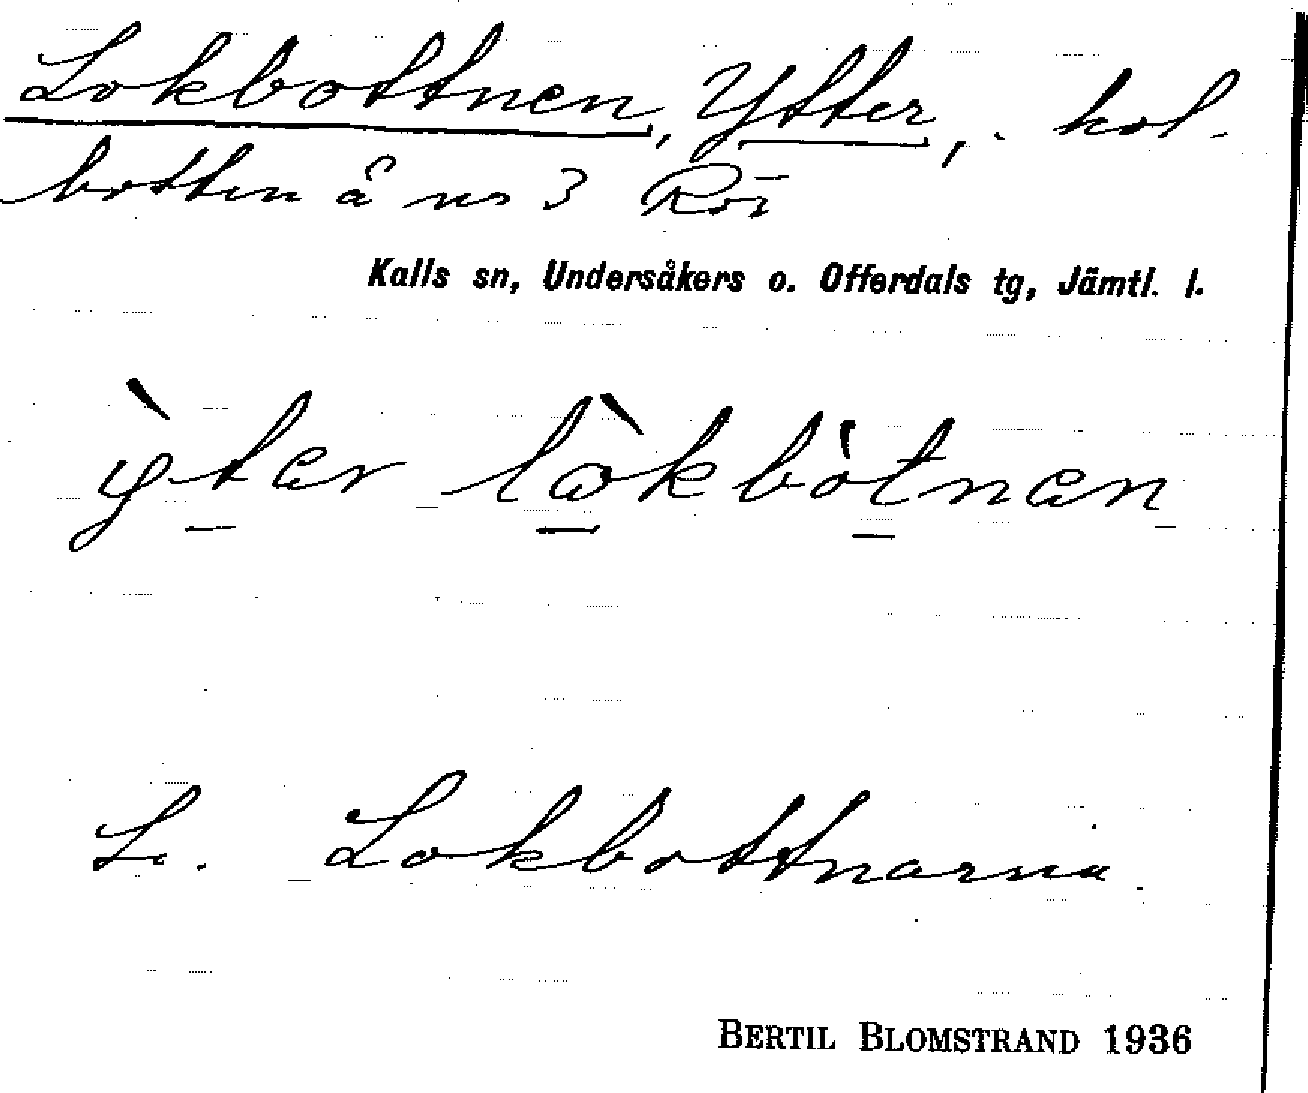 Lokbottnen, Ytter, kol-
botten å nr 3 Röi
Kalls sn, Undersåkers o. Offerdals tg, Jämtl. l.
ỳter lòkbòtnen
L. Lokbottnarna
BERTIL BLOMSTRAND 1936